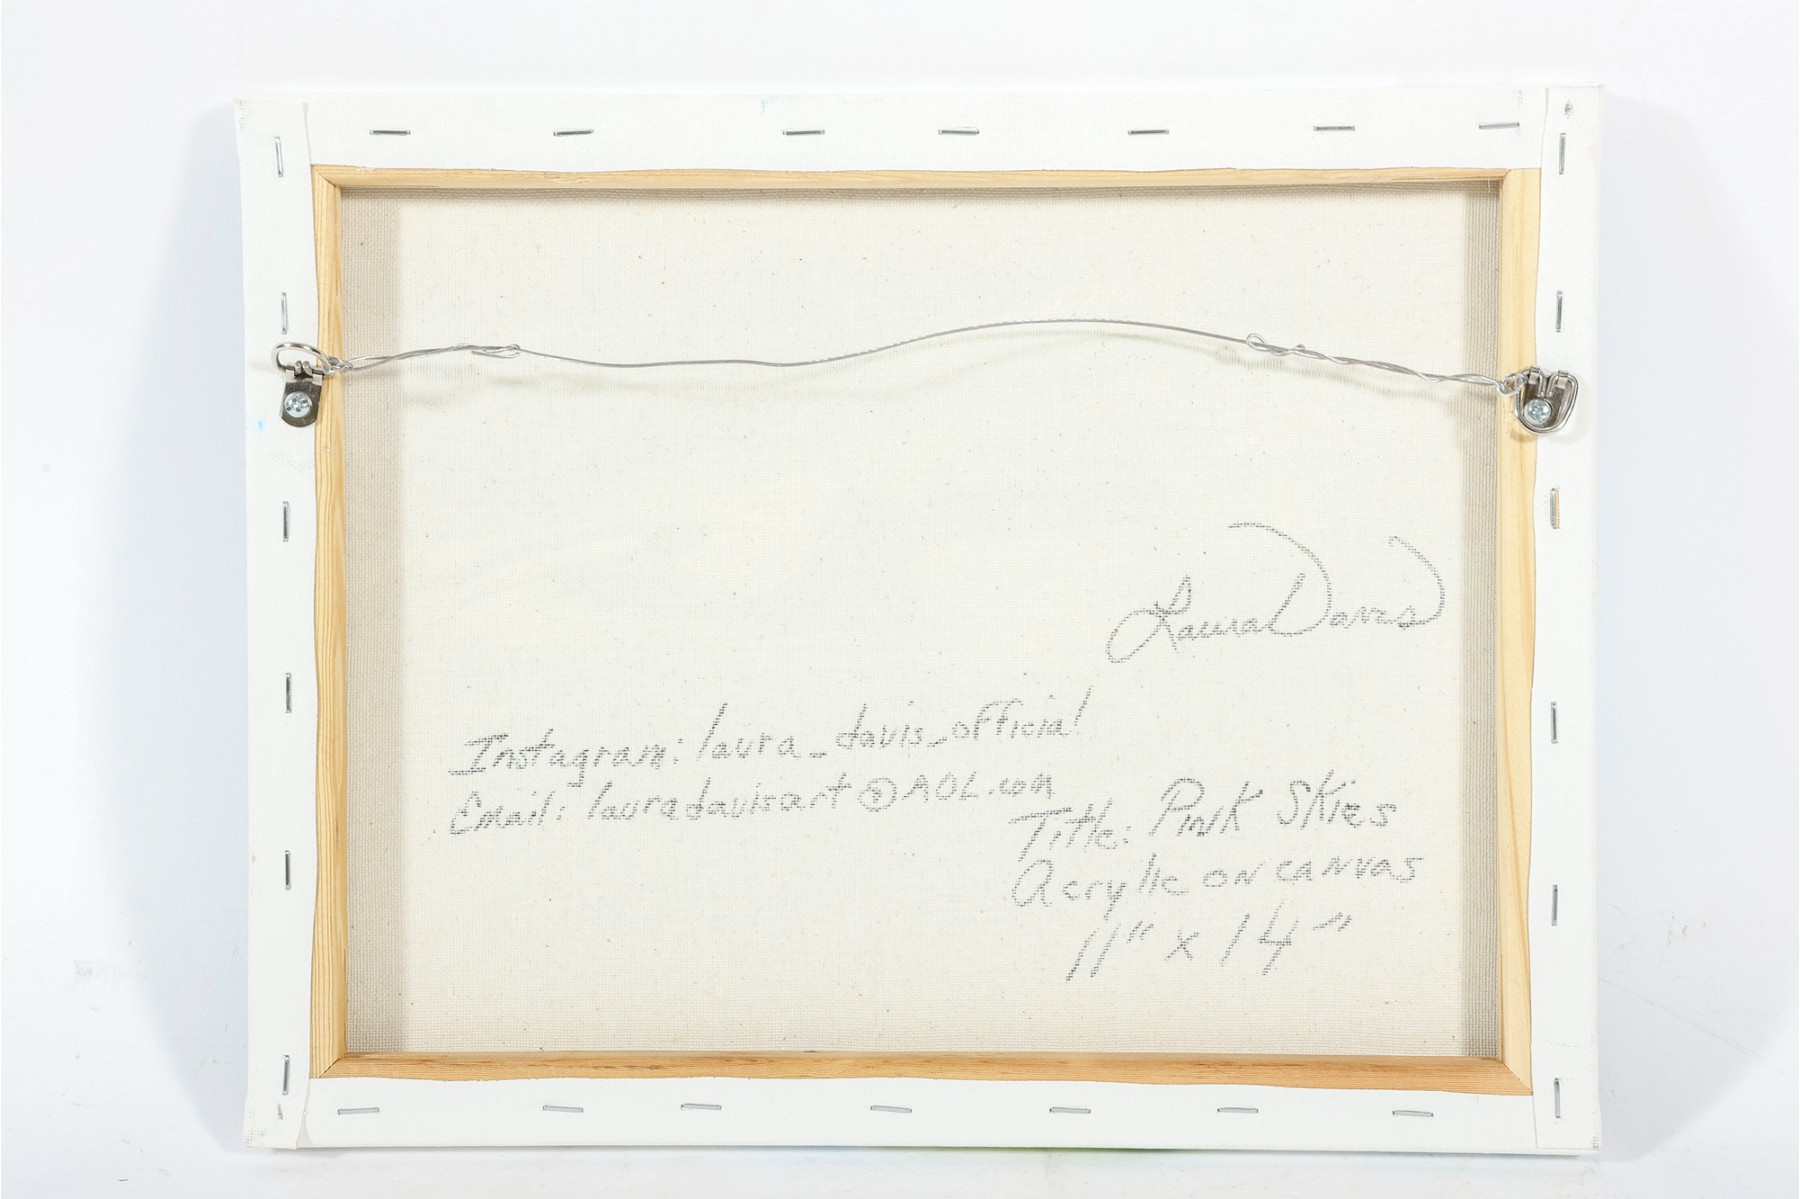 Laura Davis
Instagram: laura_davis_official
Email: lauradavisart@AOL.com
Title: Pink Skies
Acrylic on canvas
11" x 14"